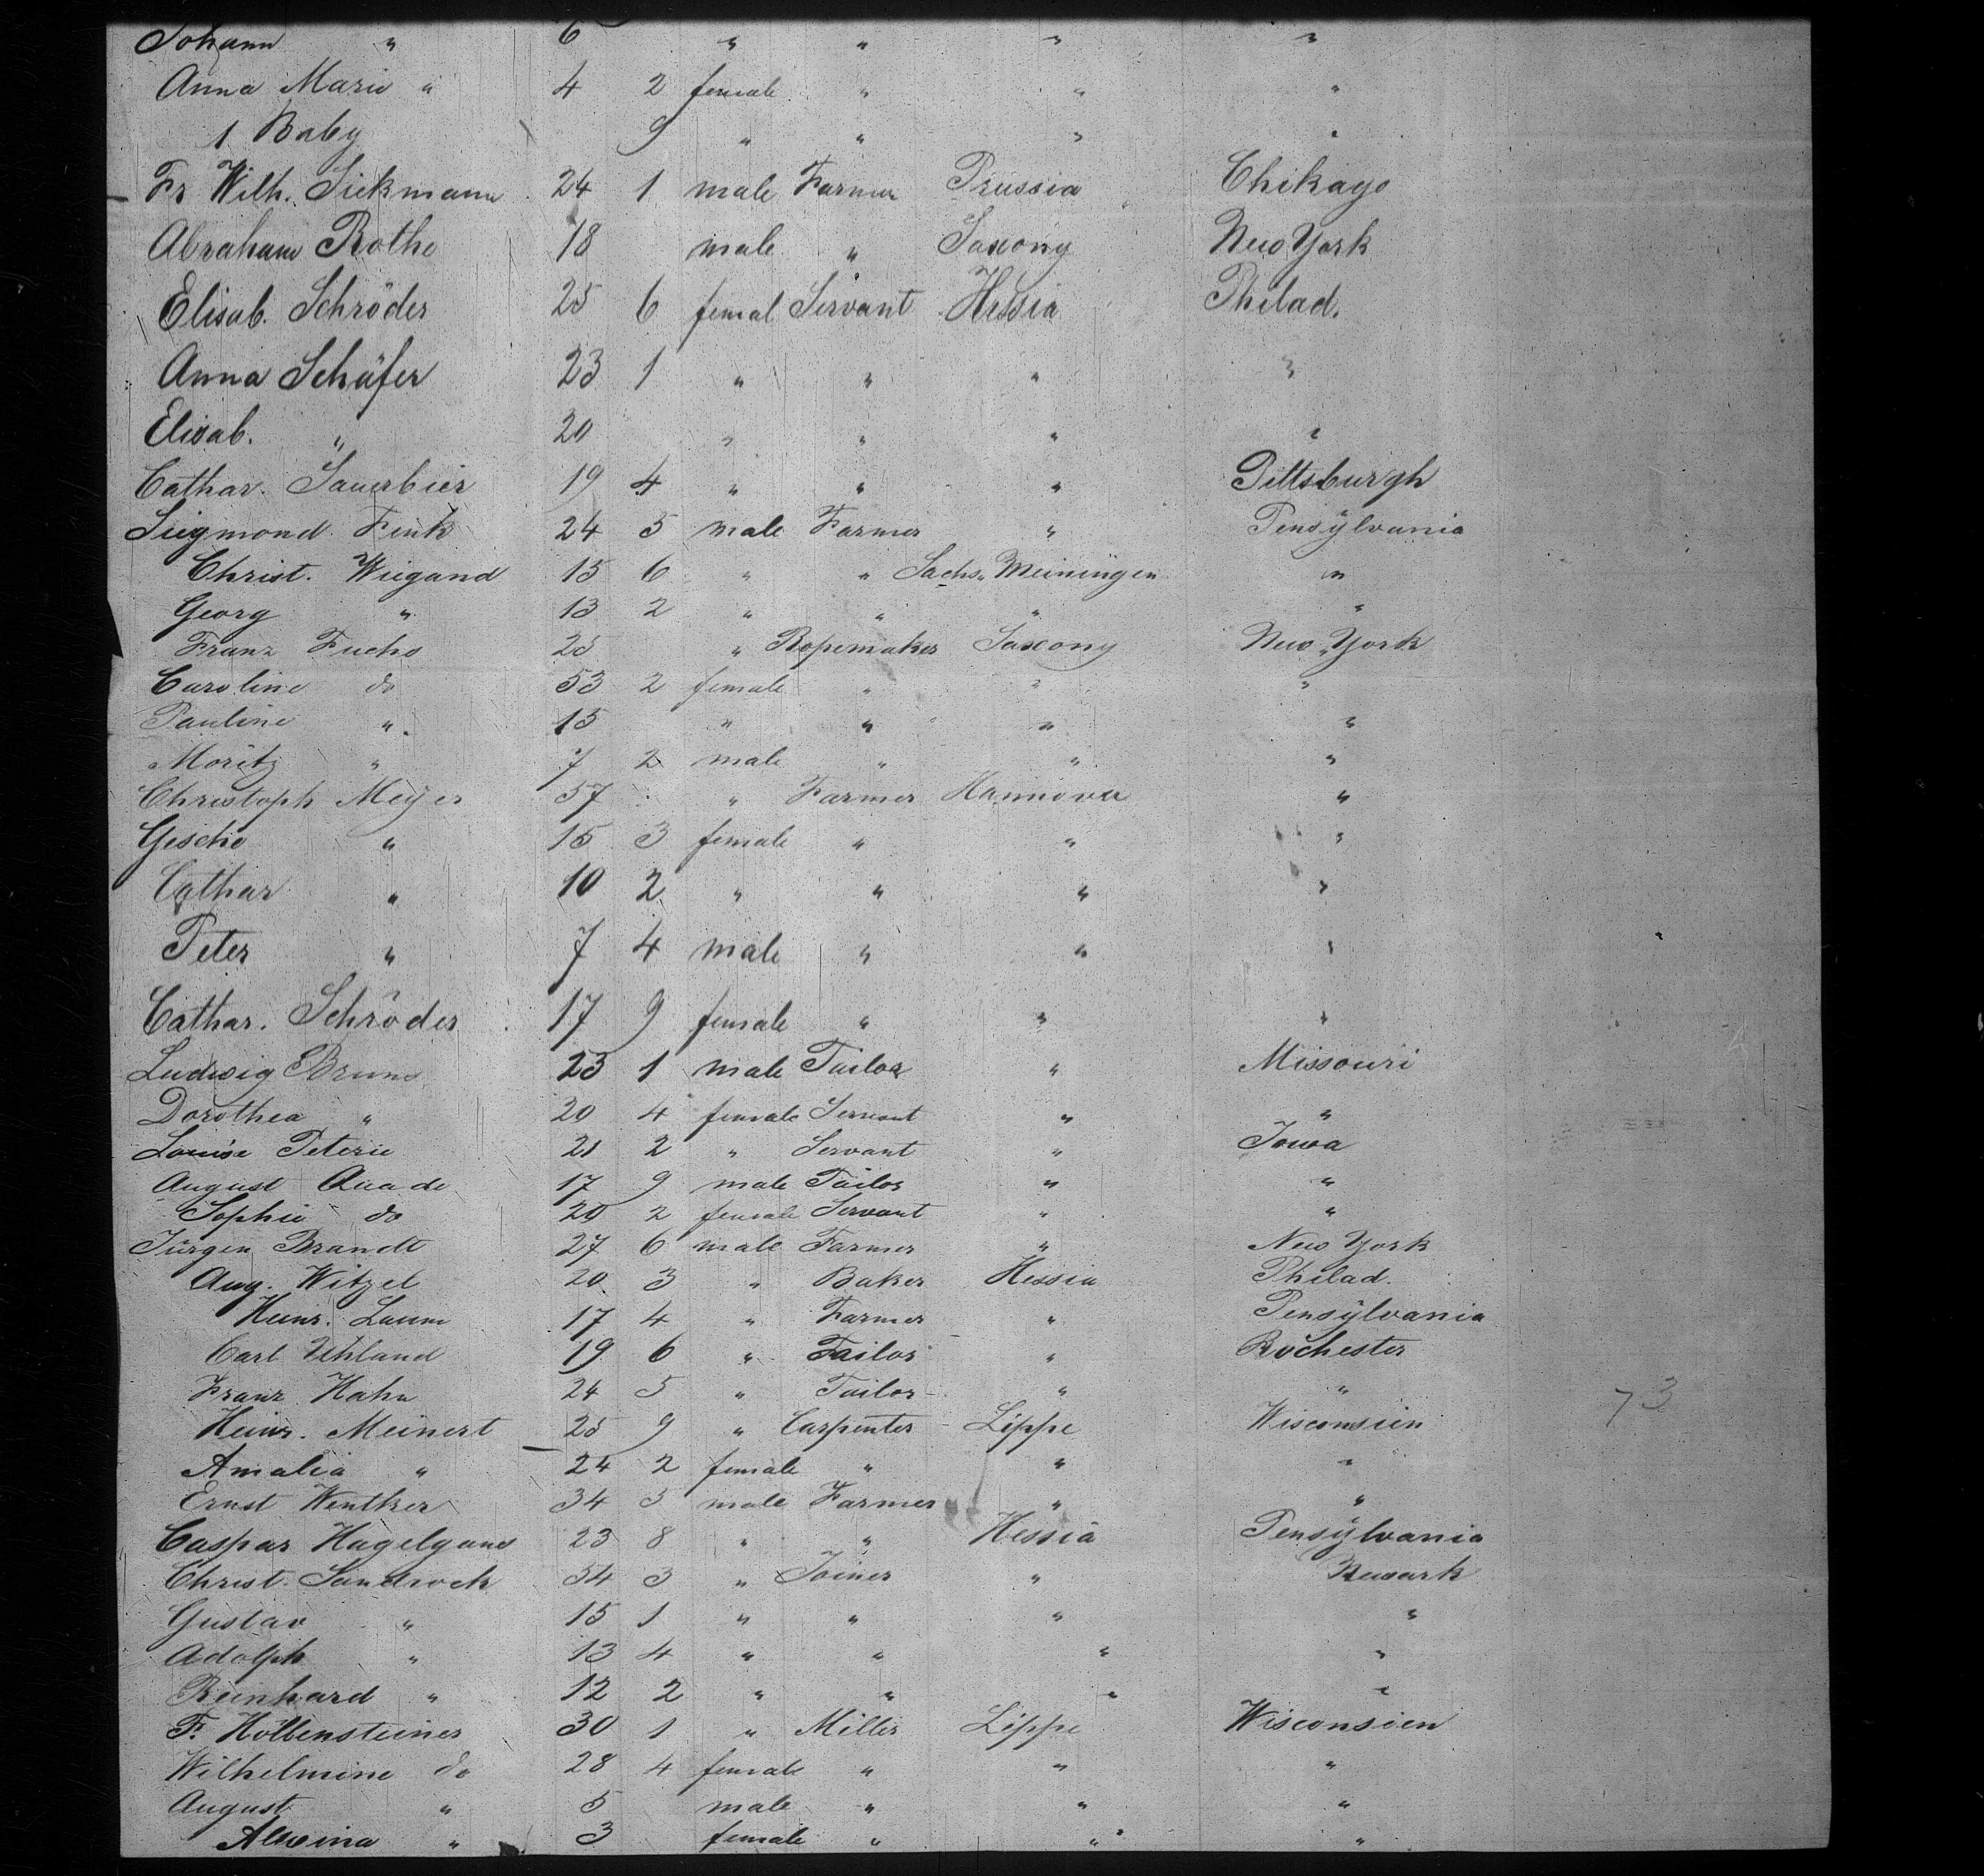 Johann " 6 " " " "
Anna Marie " 4 2 female " " "
1 Baby 9 " " " "
Fr Wilh. Siekmann 24 1 male Farmer Prussia Chikago
Abraham Rothe 18 male " Saxony New York
Elisab. Schröder 25 6 femal Servant Hessia Philad.
Anna Schäfer 23 1 " " " "
Elisab. " 20 " " " "
Cathar. Sauerbier 19 4 " " " Pittsburgh
Siegmond Fink 24 5 male Farmer " Pensylvania
Christ. Wiegand 15 6 " " Sachs. Meiningen "
Georg " 13 2 " " " "
Franz Fuchs 25 " Ropemaker Saxony New York
Caroline do 53 2 female " " "
Pauline " 15 " " " "
Moritz " 7 2 male " " "
Christoph Meyer 57 " Farmer Hannover "
Gesche " 15 3 female " " "
Cathar " 10 2 " " " "
Peter " 7 4 male " " "
Cathar. Schröder 17 9 female " " "
Ludwig Bruns 23 1 male Tailor " Missouri
Dorothea " 20 4 female Servant " "
Louise Peterie 21 2 " Servant " Iowa
August Quade 17 9 male Tailor " "
Sophie do 20 2 female Servant " "
Jürgen Brandt 27 6 male Farmer " New York
Aug. Witzel 20 3 " Baker Hessia Philad.
Heinr. 17 4 " Farmer " Pensylvania
Carl Uhland 19 6 " Tailor " Rochester
Franz Hahn 24 5 " Tailor " "
Heinr. Meinert 25 9 " Carpenter Lippe Wisconsien 73
Amalia " 24 2 female " " "
Ernst Wentker 34 5 male Farmer " "
Caspar Hagelgans 23 8 " " Hessia Pensylvania
Christ. Sandrock 34 3 " Joiner " Newark
Gustav " 15 1 " " " "
Adolph " 13 4 " " " "
Reinhard " 12 2 " " " "
F. Höltensteiner 30 1 " Miller Lippe Wisconsien
Wilhelmine do 28 4 female " " "
August " 5 male " " "
Alwina " 3 female " " "